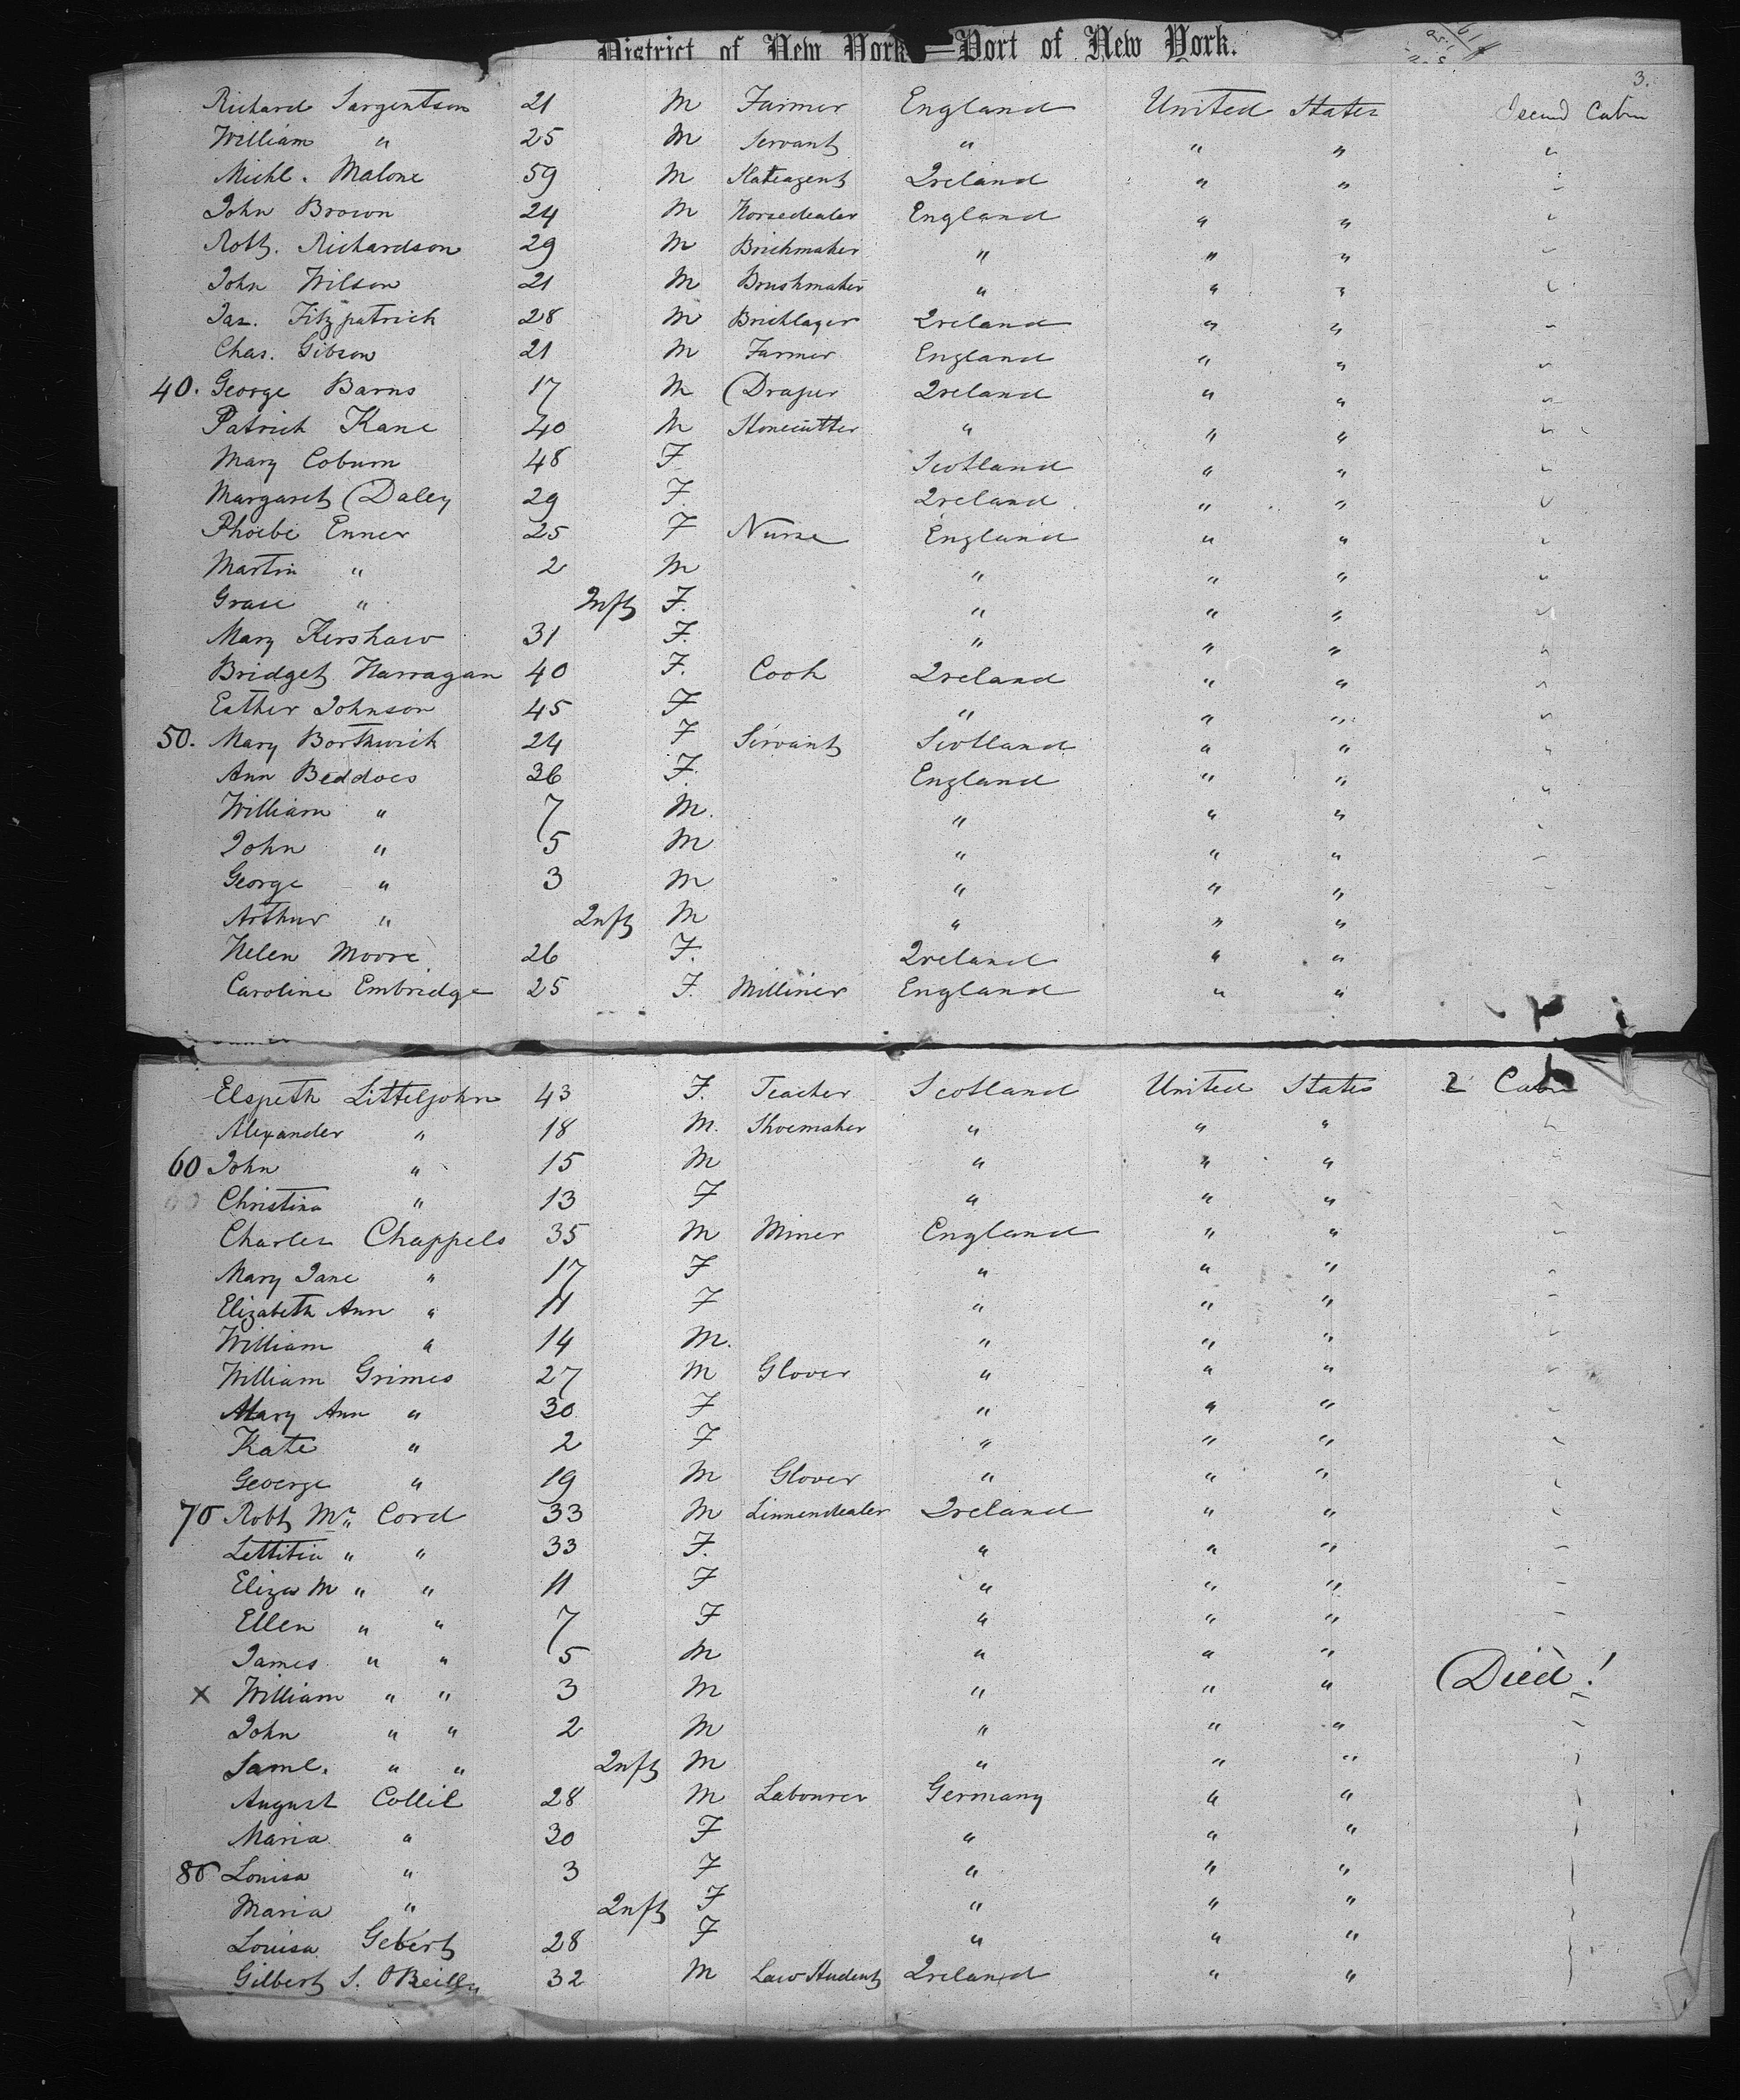 District of New York — Port of New York.
3.
Richard Sargentson 21 M Farmer England United States Second Cabin
William " 25 M Servant " " " "
Michl. Malone 59 M Ireland " " "
John Brown 24 M Horsedealer England " " "
Robt. Richardson 29 M Brickmaker " " " "
John Wilson 21 M Brushmaker " " " "
Jas. Fitzpatrick 28 M Bricklayer Ireland " " "
Chas. Gibson 21 M Farmer England " " "
40. George Barns 17 M Draper Ireland " " "
Patrick Kane 40 M Stonecutter " " " "
Mary Coburn 48 F Scotland " " "
Margaret Daley 29 F. Ireland " " "
Phoebe Enner 25 F Nurse England " " "
Martin " 2 M " " " "
Grace " Inft F. " " " "
Mary Kershaw 31 F. " " " "
Bridget Harragan 40 F. Cook Ireland " " "
Esther Johnson 45 F " " " "
50. Mary Borthwick 24 F Servant Scotland " " "
Ann Beddoes 36 F. England " " "
William " 7 M. " " " "
John " 5 M " " " "
George " 3 M " " " "
Arthur " Inft M " " "
Helen Moore 26 F. Ireland " "
Caroline Embridge 25 F. Milliner England " "
Elspeth Litteljohn 43 F. Teacher Scotland United States 2 Cabin
Alexander " 18 M. Shoemaker " " " "
60 John " 15 M " " " "
Christina " 13 F " " " "
Charles Chappels 35 M Miner England " " "
Mary Jane " 17 F " " " "
Elizabeth Ann " 11 F " " " "
William " 14 M. " " " "
William Grimes 27 M Glover " " " "
Mary Ann " 30 F " " " "
Kate " 2 F " " " "
Geoerge " 19 M Glover " " " "
70 Robt Mc Cord 33 M Linnendealer Ireland " " "
Lettitia " " 33 F. " " " "
Eliza M " " 11 F " " " "
Ellen " " 7 F " " " "
James " " 5 M " " "
X William " " 3 M " " " Died!
John " " 2 M " " " "
Saml. " " Inft M " " "
August Collil 28 M Labourer Germany " "
Maria " 30 F " " "
80 Louisa " 3 F " " "
Maria " Inft F " " "
Louisa Gebert 28 F " " "
Gilbert S. O'Reilly 32 M Law Student Ireland " "